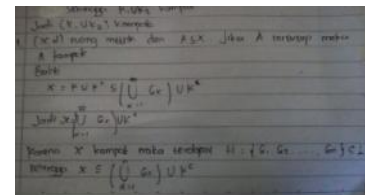 sehingga K₁ ∪ K₂
Jadi (K₁ ∪ K₂) kompak
(X,d) ruang metrik dan A ⊆ X. Jika A tertutup maka
A kompak
Bukti
X = K ∪ Kᶜ ⊆ (⋃ Gα) ∪ Kᶜ
Jadi X (⋃ Gα) ∪ Kᶜ
Karena X kompak maka terdapat H = {G₁ G₂ ... Gn}
sehingga X ⊆ (⋃ Gα) ∪ Kᶜ